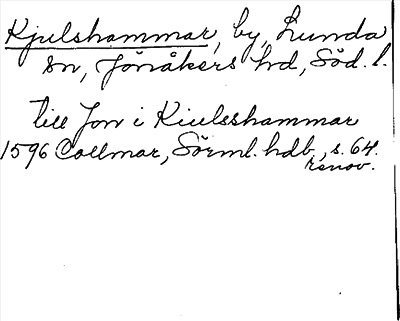 Kjulshammar, by, Lunda
sn, Jönåkers hd, Söd. l.
till Jon i Kiulsshammar
1596 Collmar, Sörml. hdb, s. 64.
renov.